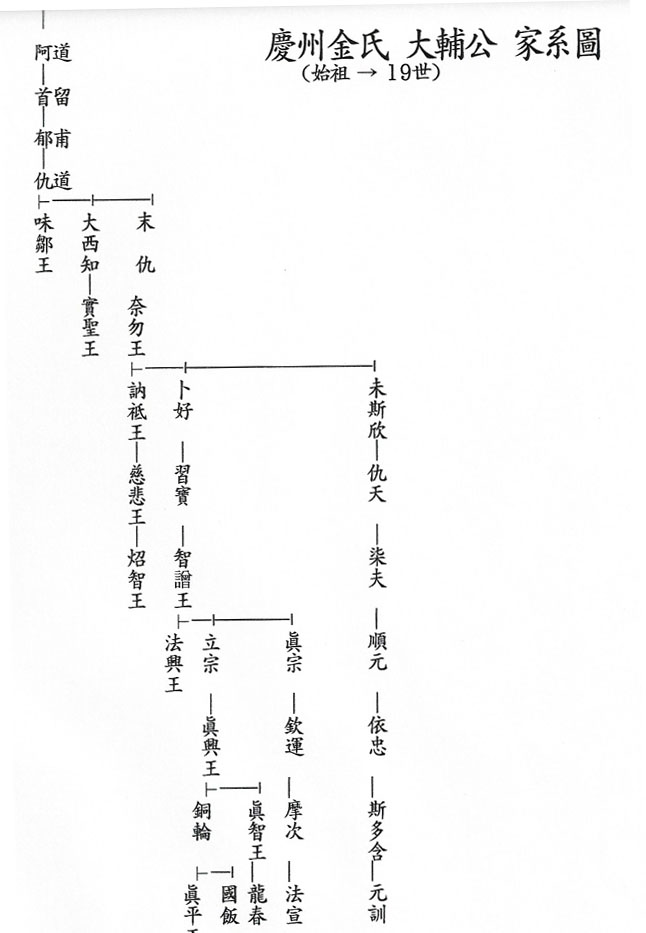 慶州金氏 大輔公 家系圖
(始祖 → 19世)
阿道
首留
郁甫
仇道
味鄒王
大西知
實聖王
末仇
奈勿王
訥祗王
慈悲王
炤智王
卜好
習寶
智證王
法興王
立宗
眞興王
銅輪
眞平王
國飯
眞智王
龍春
眞宗
欽運
摩次
法宣
未斯欣
仇天
柒夫
順元
依忠
斯多含
元訓